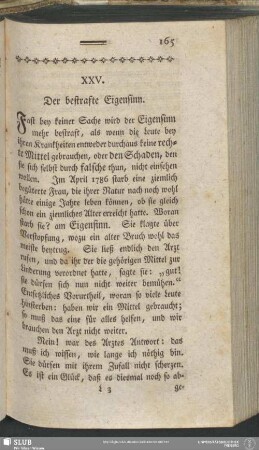 165
XXV.
Der bestrafte Eigensinn.
Fast bey keiner Sache wird der Eigensinn
mehr bestraft, als wenn die Leute bey
ihren Krankheiten entweder durchaus keine rech-
te Mittel gebrauchen, oder den Schaden, den
sie sich selbst durch falsche thun, nicht einsehen
wollen. Im April 1786 starb eine ziemlich
begüterte Frau, die ihrer Natur nach noch wohl
hätte einige Jahre leben können, ob sie gleich
schon ein ziemliches Alter erreicht hatte. Woran
starb sie? am Eigensinn. Sie klagte über
Verstopfung, wozu ein alter Bruch wohl das
meiste beytrug. Sie ließ endlich den Arzt
rufen, und da ihr der die gehörigen Mittel zur
Linderung verordnet hatte, sagte sie: „gut!
sie dürfen sich nun nicht weiter bemühen.“
Entsetzliches Vorurtheil, woran so viele Leute
hinsterben: haben wir ein Mittel gebraucht;
so muß das eine für alles helfen, und wir
brauchen den Arzt nicht weiter.
Nein! war des Arztes Antwort: das
muß ich wissen, wie lange ich nöthig bin.
Sie dürfen mit ihrem Zufall nicht scherzen.
Es ist ein Glück, daß es diesmal noch so ab-
l 3
ge-
SLUB